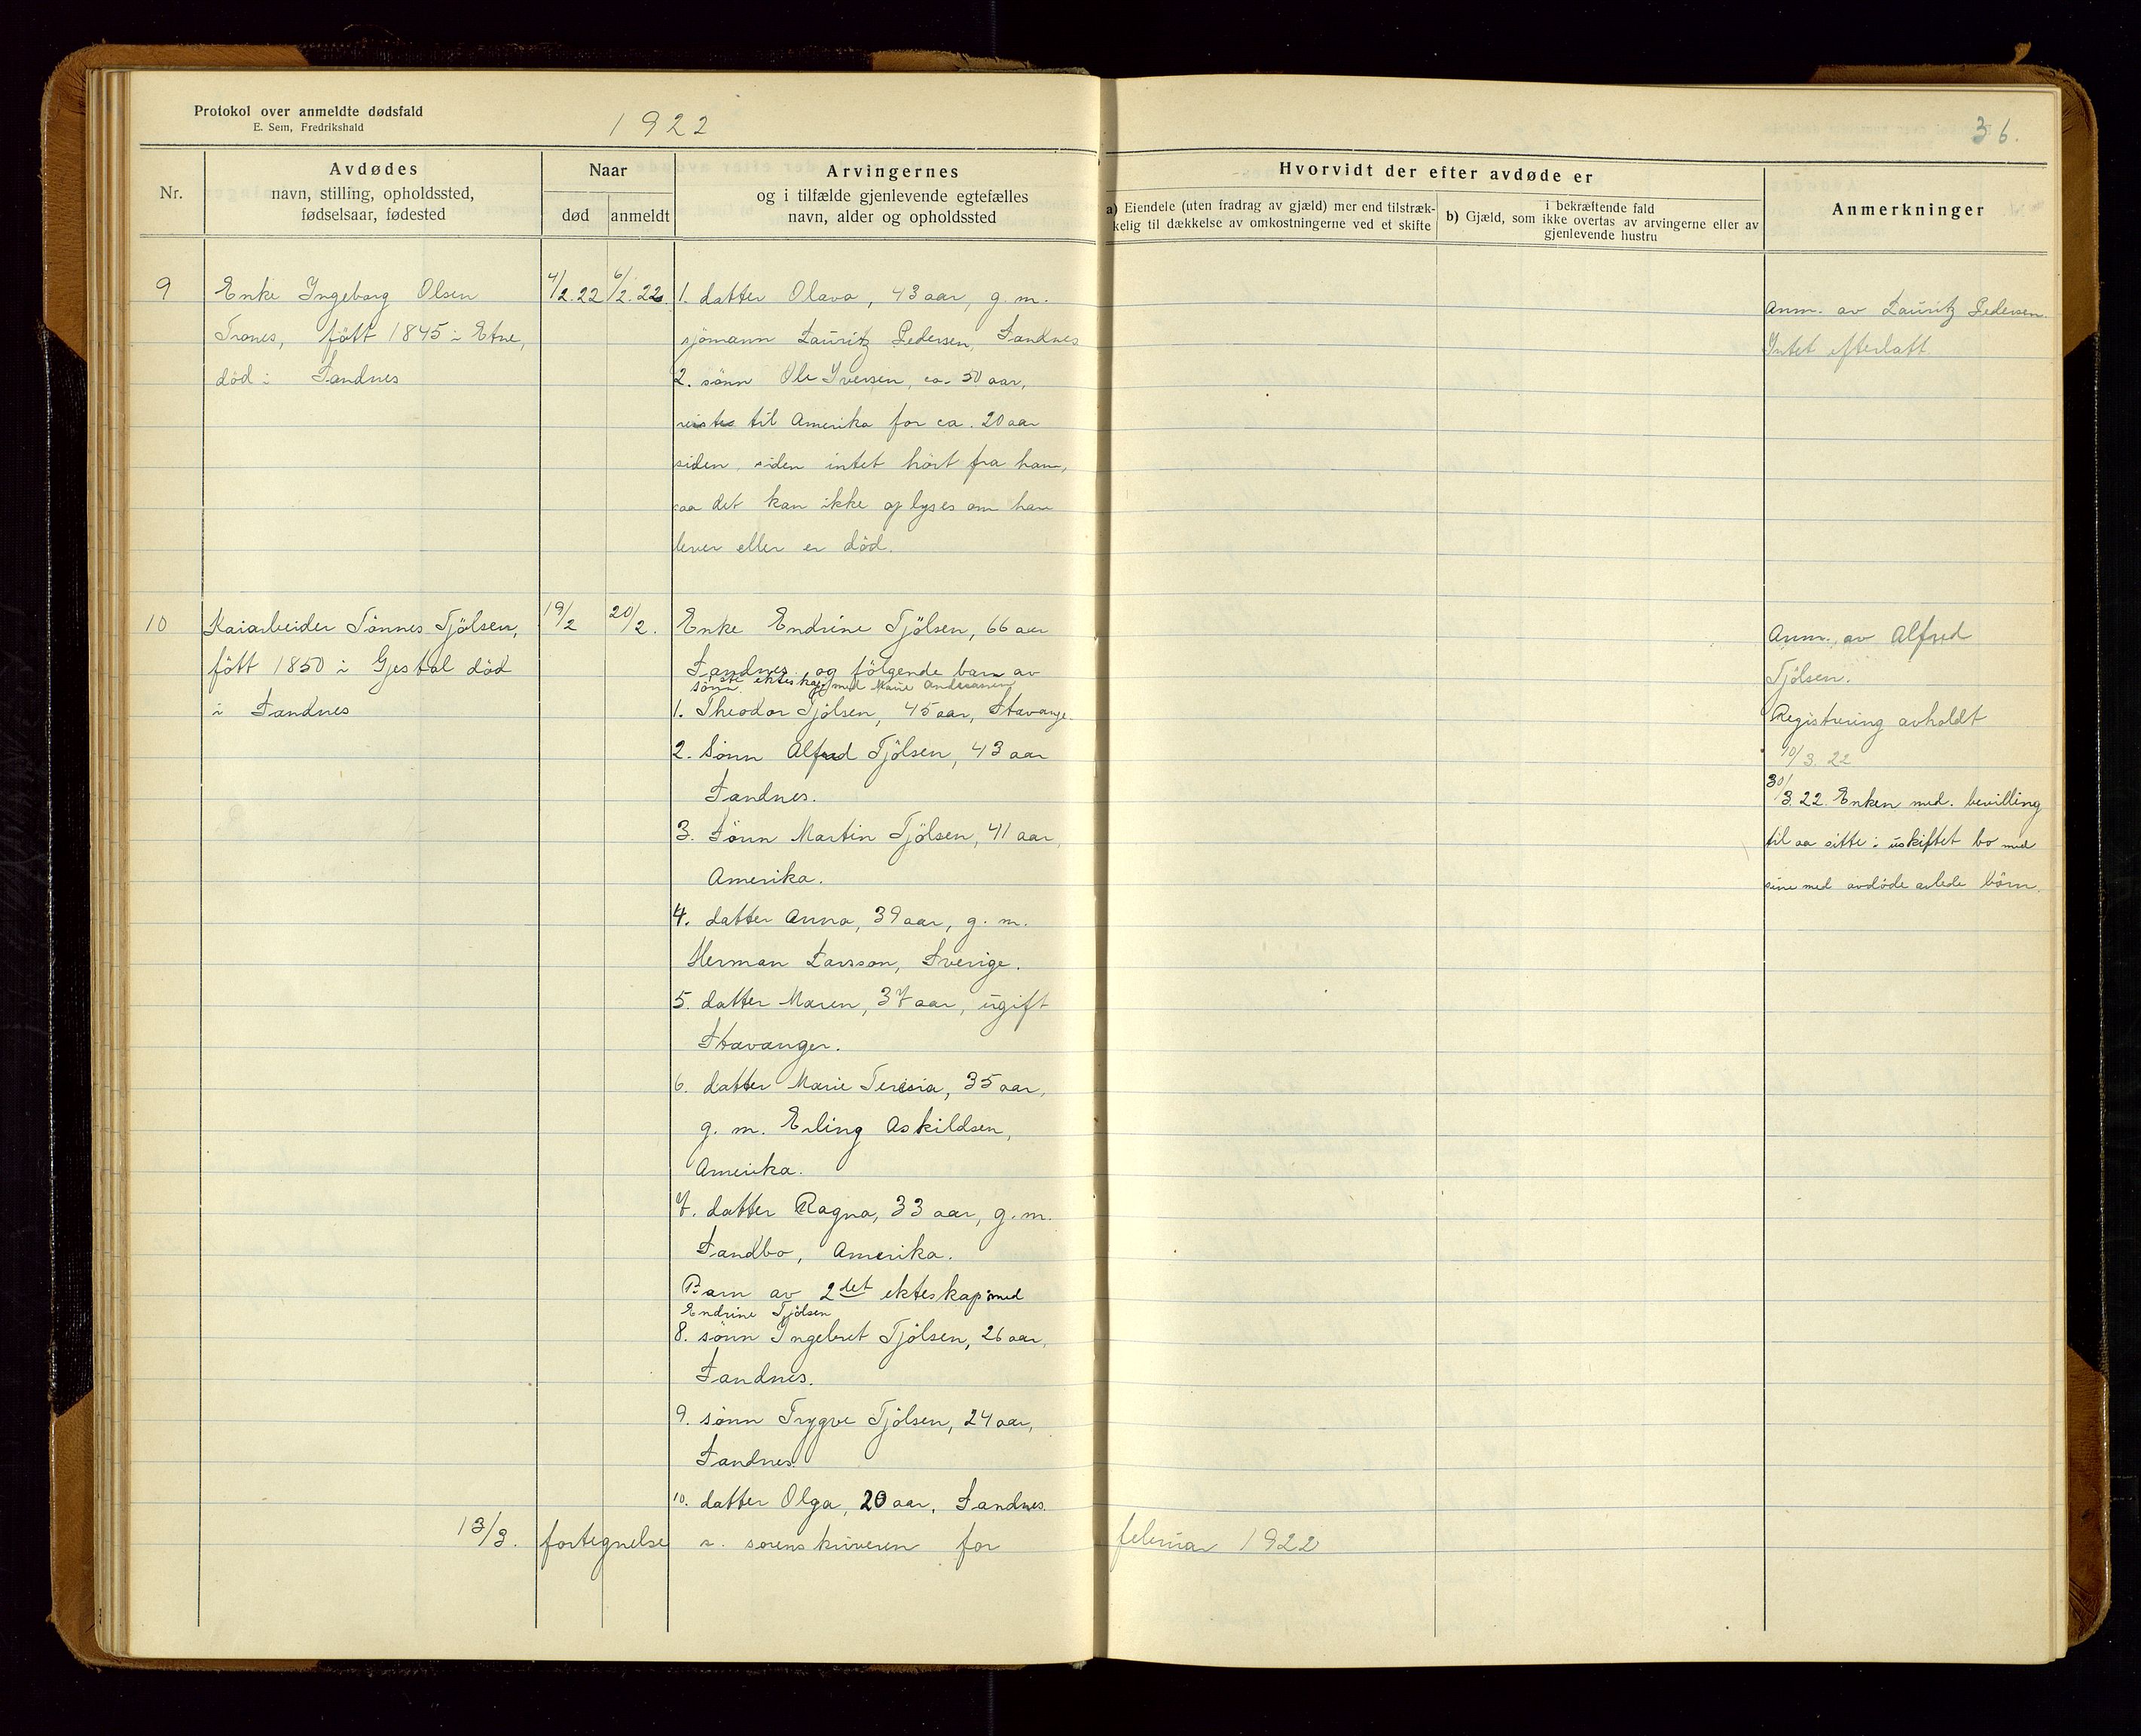 Protokol over anmeldte dødsfald
E. Sem, Fredrikshald
1922
36.
Nr.
Avdødes
navn, stilling, opholdssted,
fødselsaar, fødested
Naar
død
anmeldt
Arvingernes
og i tilfælde gjenlevende egtefælles
navn, alder og opholdssted
Hvorvidt der efter avdøde er
a) Eiendele (uten fradrag av gjæld) mer end tilstræk-
kelig til dækkelse av omkostningerne ved et skifte
i bekræftende fald
b) Gjæld, som ikke overtas av arvingerne eller av
gjenlevende hustru
Anmerkninger
9
Enke Ingeborg Olsen
Tranes, født 1845 i Etne,
död i Sandnes
4/2.22
6/2.22.
1. datter Olava, 43 aar, g. m.
sjömann Lauritz Pedersen, Sandnes
2. sönn Ole Iversen, ca. 50 aar,
reiste til Amerika for ca. 20 aar
siden, siden intet hört fra ham,
saa det kan ikke oplyses om han
lever eller er död.
Anm. av Lauritz Pedersen.
Intet efterlatt
10
Kaiarbeider Tönnes Tjölsen,
född 1850 i Gjestal död
i Sandnes
19/2
20/2.
Enke Endrine Tjölsen, 66 aar
Sandnes og fölgende barn av
1ste ekteskap med Marie Andreassen
sönn
1. Theodor Tjölsen, 45 aar, Stavanger.
2. Sönn Alfred Tjölsen, 43 aar
Sandnes.
3. Sönn Martin Tjölsen, 41 aar,
Amerika.
4. datter Anna, 39 aar, g. m.
Herman Larsson, Sverige.
5. datter Maren, 37 aar, ugift
Stavanger.
6. datter Marie Teresia, 35 aar,
g. m. Erling Askildsen,
Amerika.
7. datter Ragna, 33 aar, g. m.
Sandbo, Amerika.
Barn av 2det ekteskap med
Endrine Tjölsen
8. sönn Ingebret Tjölsen, 26 aar,
Sandnes.
9. sönn Trygve Tjölsen, 24 aar,
Sandnes.
10. datter Olga, 20 aar, Sandnes.
Anm. av Alfred
Tjölsen.
Registrering avholdt
10/3. 22
30/3 22. Enken med. bevilling
til aa sitte i uskiftet bo med
sine med avdöde avlede börn.
13/3. fortegnelse s. sorenskriveren for februar 1922